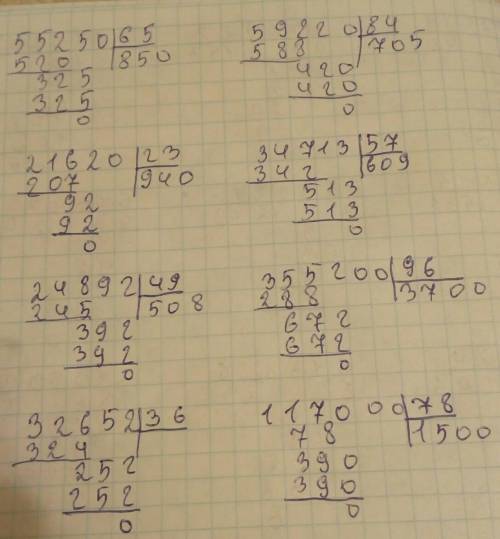 55250 65
520 850
325
325
0
59220 84
588 705
420
420
0
21620 23
207 940
92
92
0
34713 57
342 609
513
513
0
24892 49
245 508
392
392
0
355200 96
288 3700
672
672
0
32652 36
324
252
252
0
117000 78
78 1500
390
390
0